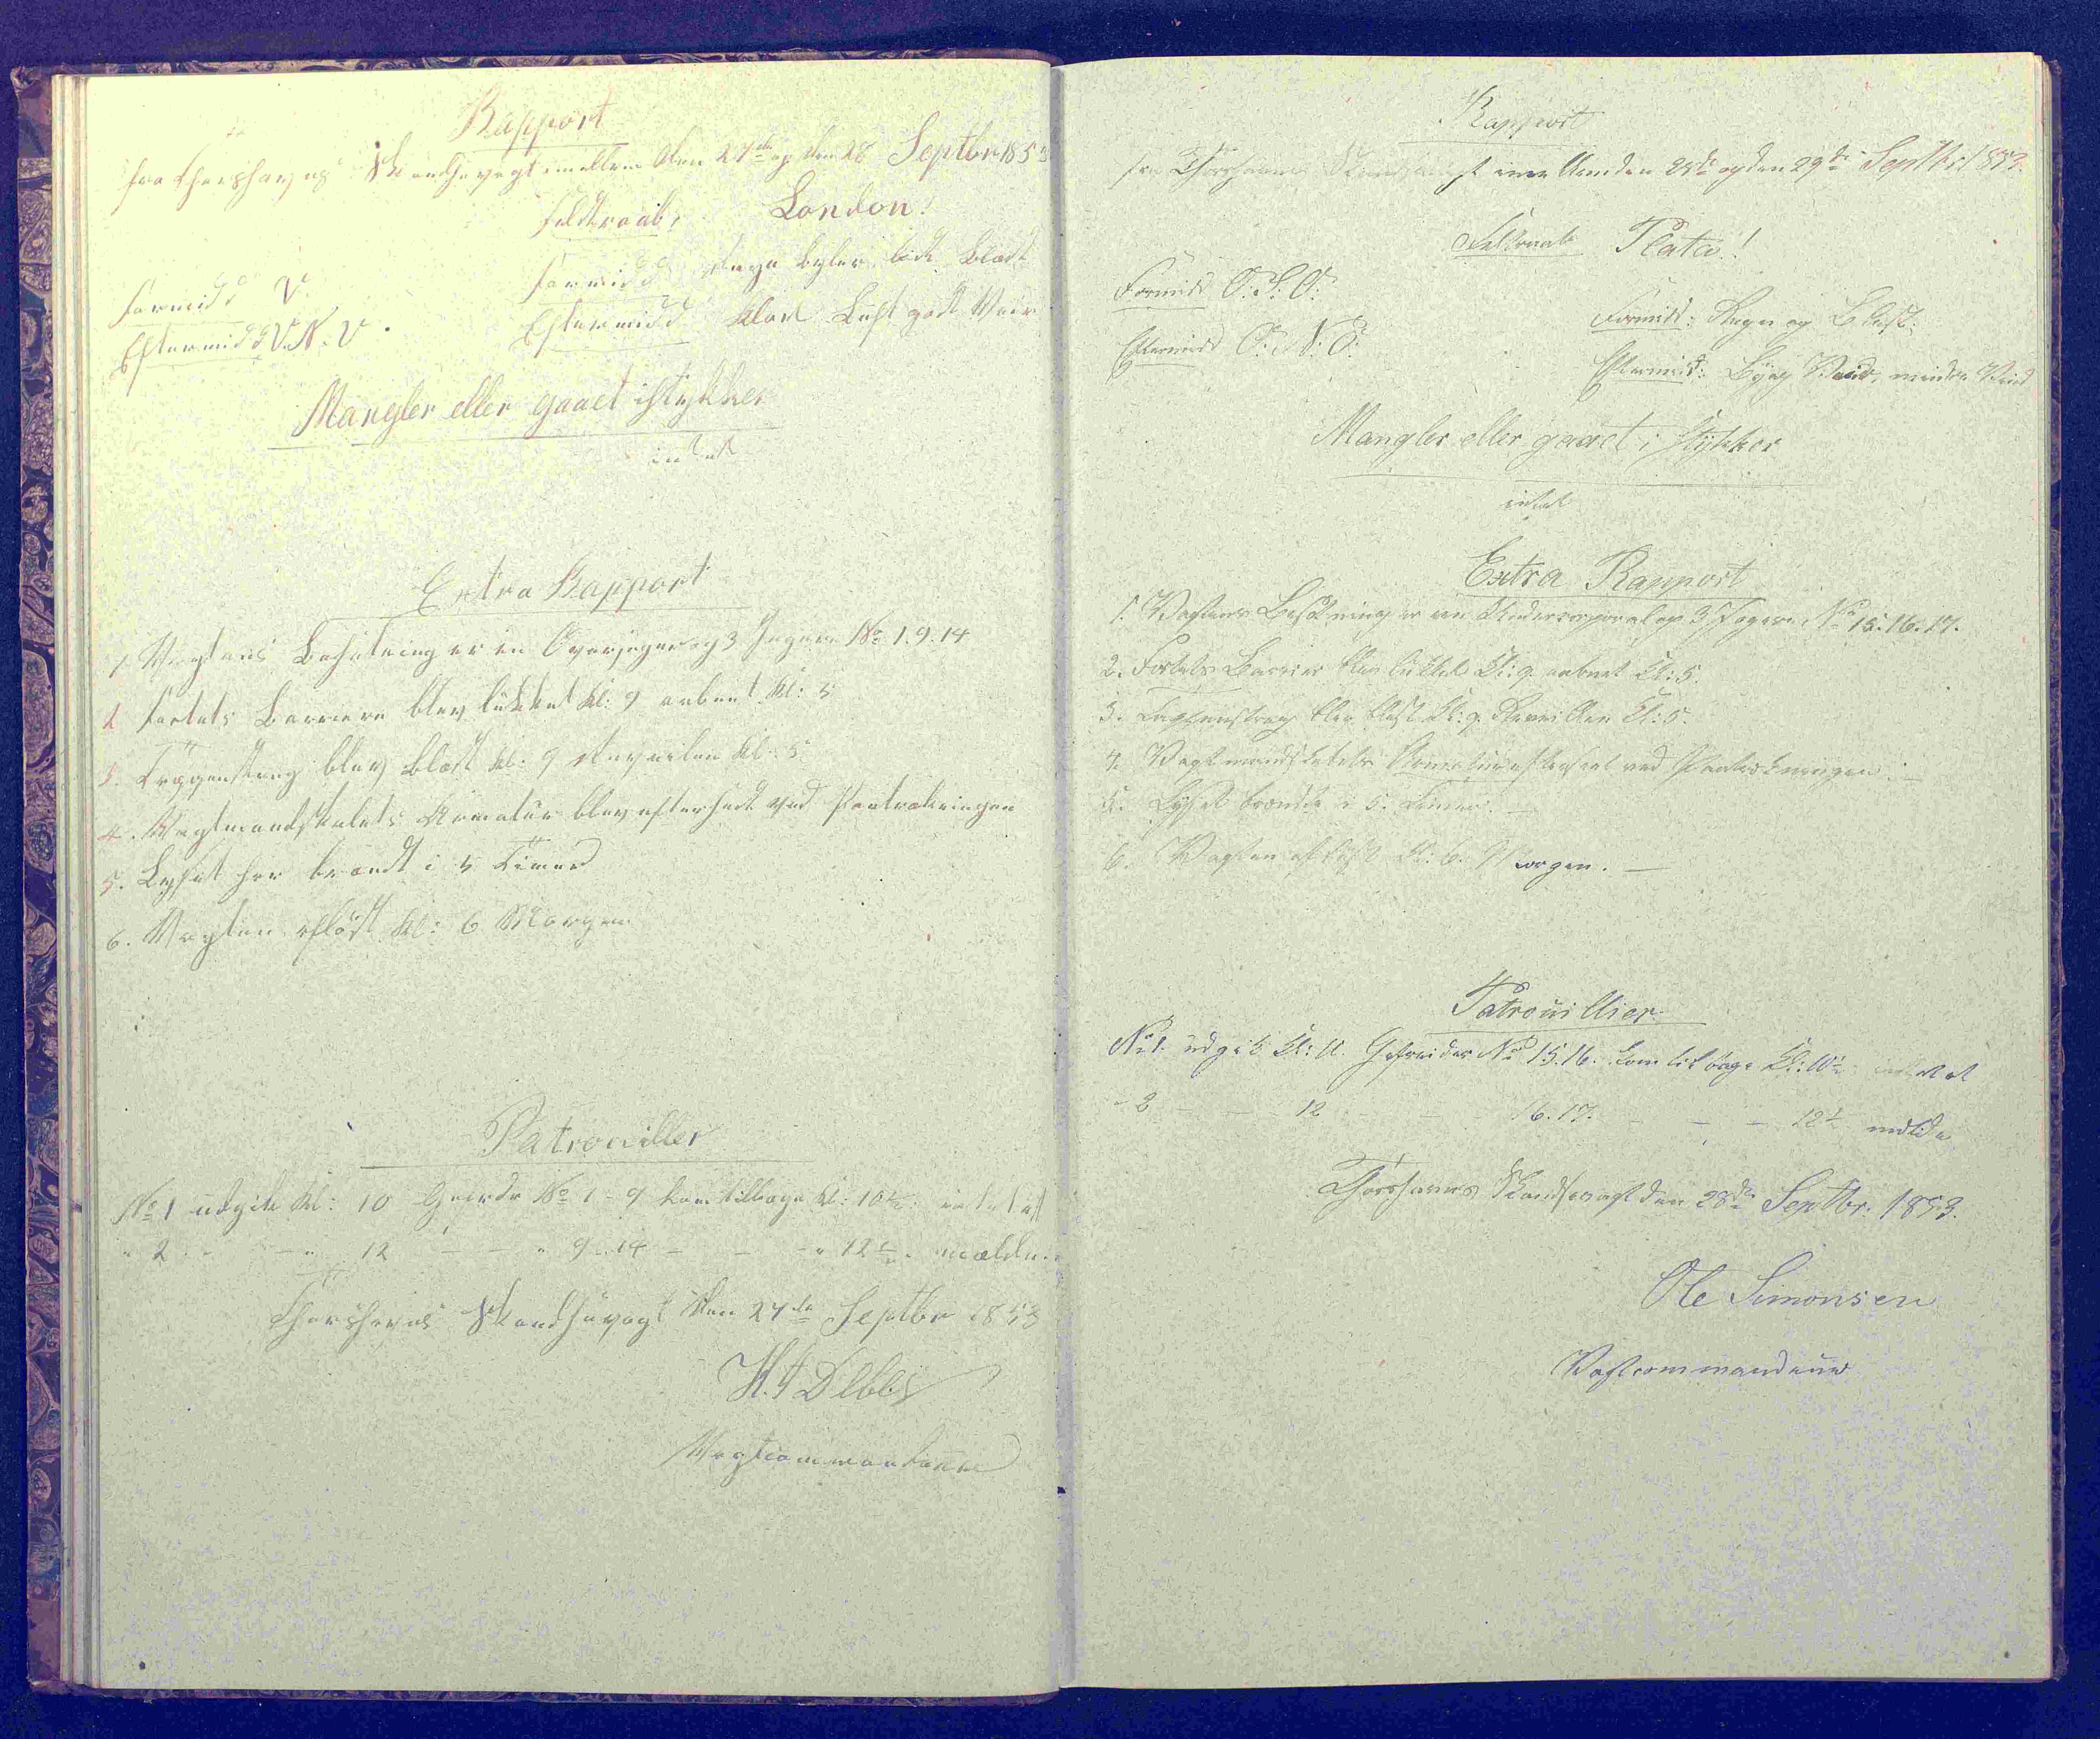 Rapport
fra Thorshavns Skandsevagt imellem den 27de og den 28 Septbr 1853
Feldtraab, London!
Formidd V.
Formidd Byger lidt Blæst
Eftermidd V.N.V.
Eftermidd klar Luft godt Veir
Mangler eller gaaet istykker
intet
Extra Rapport
1 Vagtens Besætning er en Overjæger og 3 Jægere No 1.9.14
2 Fortets Barriere blev lukket Kl: 9 aabnet Kl: 5
3. Tappenstreg blev blæst Kl: 9 Reveillen Kl: 5
4. Vagtmandskabets Armatur blev efterseet ved Paatrækningen
5. Lyset har brændt i 5 Timer
6. Vagten afløst Kl: 6 Morgen
Patrouiller
No 1 udgik Kl: 10 No 1-9 kom tilbage Kl: 10½ intet at
" 2 - - " 12 - - " 9-14 - - - " 12½ " mælde.
Thorshavns Skandsevagt den 27de Septbr 1853
Debes
Vagtcommandeur
Rapport
fra Thorshavns Skandsevagt imellem den 28de og den 29de Septbr. 1853.
Feltraab Plata!
Formidd O.S.O.
Formidd: Regn og Blæst.
Eftermidd O.N.O.
Eftermidd: Byg Veir, mindre Vind
Mangler eller gaaet i Stykker
intet
Extra Rapport
1. Vagtens Besætning er en Undercorporal og 3 Jægere No 15.16.17.
2. Fortets Barrier blev lukket Kl: 9. aabnet Kl: 5.
3. Tappenstreg blev blæst Kl: 9. Reveillen Kl: 5.
4. Vagtmandskabets Armatur efterseet ved Paatrækningen. —
5. Lyset brændte i 5. Timer. —
6. Vagten afløst Kl: 6. Morgen. —
Patrouillier
No 1. udgik Kl: Gefreider No 15.16. kom tilbage Kl: 10½ intet at
- 2 - - - 12 - - - 16.17. - - - 12½ melde
Thorshavns Skandsevagt den 28de Septbr. 1853.
Ole Simonsen
Vagtcommandeur